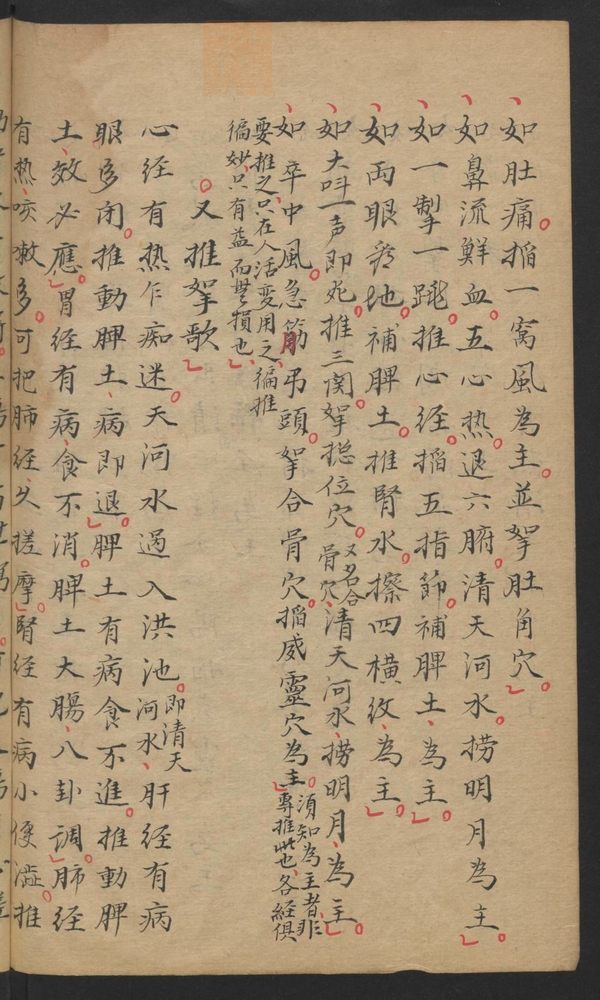 如肚痛掐一窩風為主並拏肚角穴
如鼻流鮮血五心热退六腑清天河水撈明月為主
如一掣一跳推心經掐五指節補脾土為主
如両眼看地補脾土推腎水擦四橫紋為主
如大呌一声即死推三関拏捴位穴又名合骨穴清天河水撈明月為主
如卒中風急筋吊頭拏合骨穴掐威靈穴為主須知為主者非專推此也各經俱
要推之只在人活変用之徧推徧妙只有益而無損也
又推拏歌
心经有热乍痴迷天河水過入洪池即清天河水肝经有病
眼多闭推動脾土病即退脾土有病食不進推動脾
土效必應胃经有病食不消脾土大腸八卦調肺经
有热咳嗽多可把肺经久搓摩腎经有病小便澁推